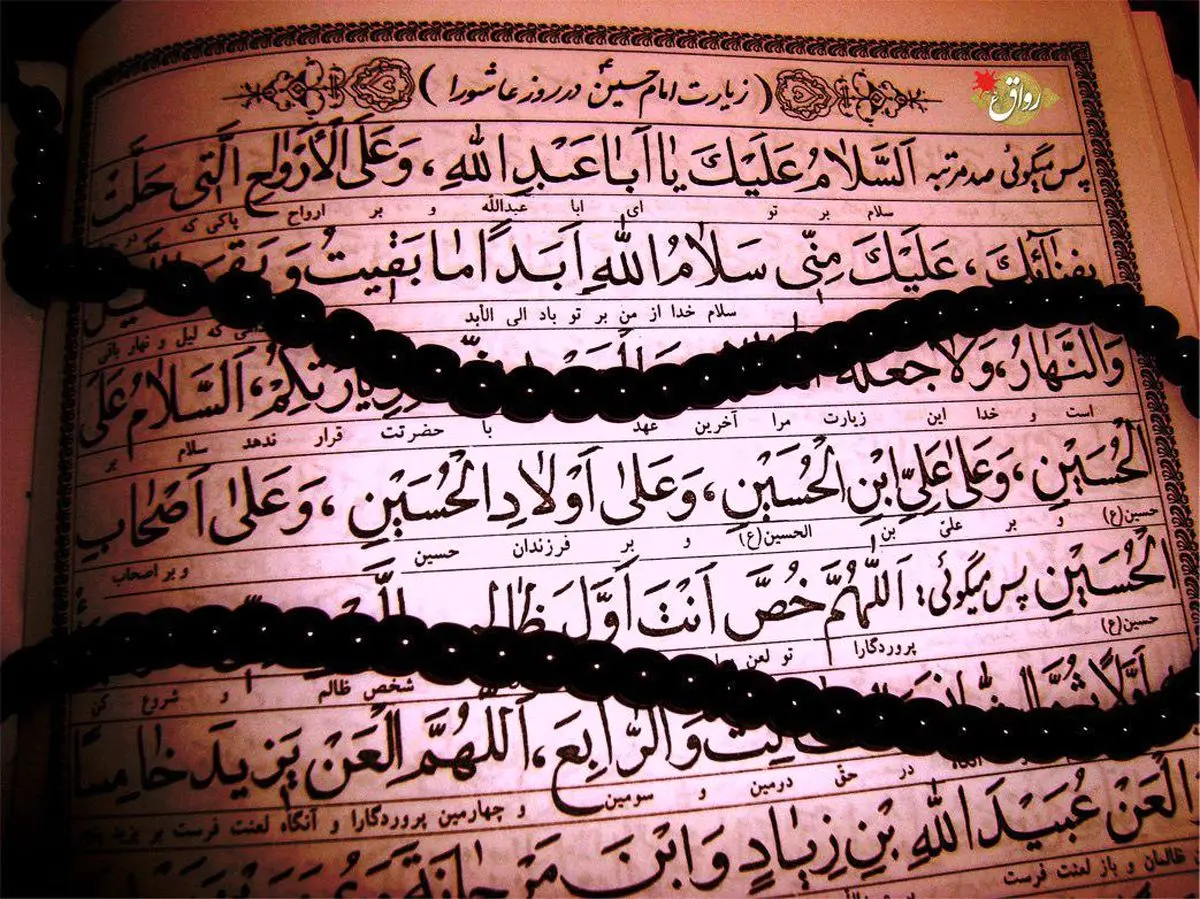 (زیارت امام حسینؑ در روز عاشورا)
رواق
پس میگوئی صد مرتبه اَلسَّلامُ عَلَیْكَ یا اَبا عَبْدِ اللهِ، وَعَلَی الْأَرْواحِ الَّتی حَلَّتْ
سلام بر تو ای ابا عبدالله و بر ارواح پاکی که در
بِفِنآئِكَ، عَلَیْكَ مِنّی سَلامُ اللهِ اَبَداً ما بَقیتُ وَ بَقِیَ
سلام خدا از من بر تو باد الی الأبد که لیل و نهار باقی
وَالنَّهارُ، وَلا جَعَلَهُ زِیارَتِکُمْ، اَلسَّلامُ عَلَی
است و خدا این زیارت مرا آخرین عهد با حضرتت قرار ندهد سلام بر
الْحُسَیْنِ، وَعَلی عَلِیِّ ابْنِ الْحُسَیْنِ، وَعَلی اَوْلادِ الْحُسَیْنِ، وَعَلی اَصْحابِ
حسین(ع) و بر علیّ بن الحسین(ع) و بر فرزندان حسین و بر اصحاب
الْحُسَیْنِ پس میگوئی: اَللّهُمَّ خُصَّ اَنْتَ اَوَّلَ ظالِمٍ
حسین(ع) پروردگارا تو لعن شخص ظالم و شروع کن
اَوَّلاً ثُمَّ وَالرّابِعَ، اَللّهُمَّ الْعَنْ یَزیدَ خامِساً
در حقّ دومین و سومین و چهارمین پروردگارا و آنگاه لعنت فرست بر یزید
الْعَنْ عُبَیْدَ اللهِ بْنِ زِیادٍ وَ ابْنَ مَرْجانَةَ
ظالمان و باز لعنت فرست